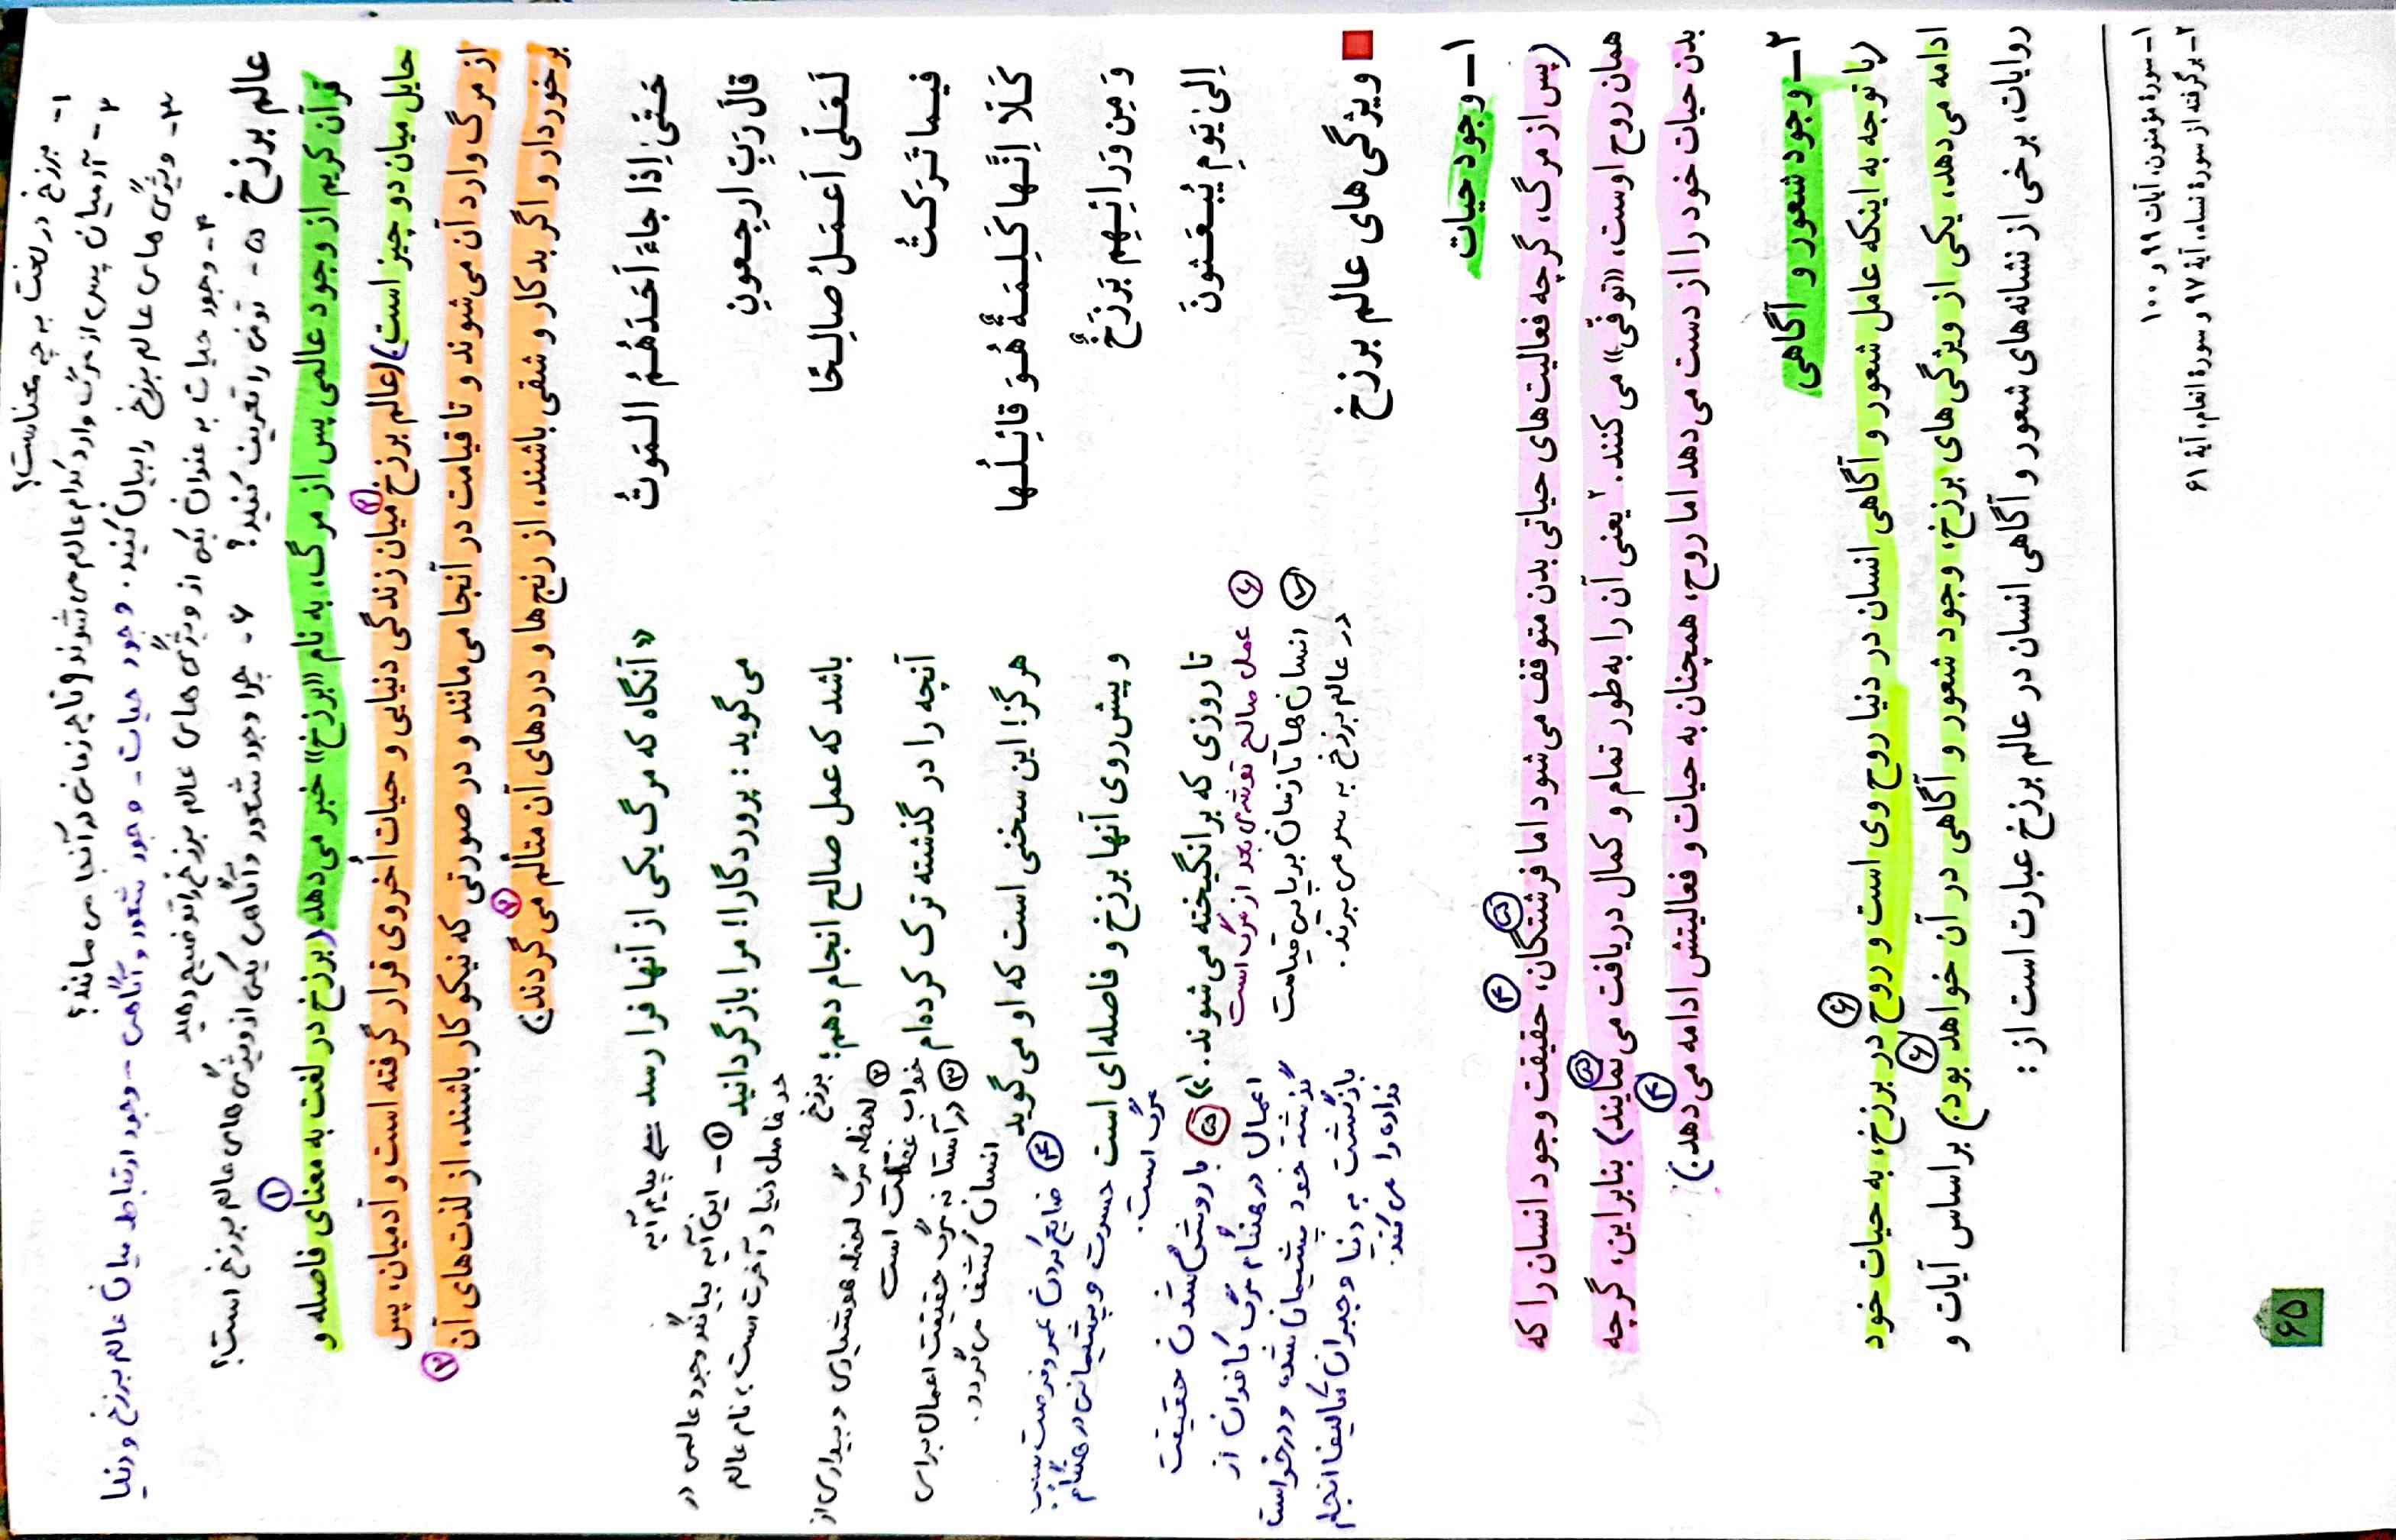 ۱- برزخ در لغت به چه معناست؟
۲- آدمیان پس از مرگ وارد کدام عالم می‌شوند و تا چه زمانی در آنجا می‌مانند؟
۳- ویژگی های عالم برزخ را بیان کنید. وجود حیات - وجود شعور و آگاهی - وجود ارتباط میان عالم برزخ و دنیا
۴- وجود حیات به عنوان یکی از ویژگی های عالم برزخ را توضیح دهید
عالم برزخ ۵- توفی را تعریف کنید؟ ۶- چرا وجود شعور و آگاهی یکی از ویژگی های عالم برزخ است؟
قرآن کریم از وجود عالمی پس از مرگ، به نام «برزخ» خبر می‌دهد (برزخ در لغت به معنای فاصله و ①
حایل میان دو چیز است) (عالم برزخ ② میان زندگی دنیایی و حیات اُخروی قرار گرفته است و آدمیان، پس
از مرگ وارد آن می‌شوند و تا قیامت در آنجا می‌مانند و در صورتی که نیکوکار باشند، از لذت‌های آن ②
برخوردار و اگر بدکار و شقی باشند، از رنج‌ها و دردهای آن متألم می‌گردند) ②
حَتّیٰ اِذا جاءَ اَحَدَهُمُ المَوتُ «آنگاه که مرگ یکی از آنها فرا رسد پیام آیه
قالَ رَبِّ ارجِعونِ می‌گوید: پروردگارا! مرا بازگردانید
①- این آیه بیانگر وجود عالمی در
حد فاصل دنیا و آخرت است به نام عالم
برزخ
لَعَلّی اَعمَلُ صالِحًا باشد که عمل صالح انجام دهم؛
② لحظه مرگ لحظه هوشیاری و بیداری از
خواب غفلت است
فیما تَرَکتُ آنچه را در گذشته ترک کرده‌ام
③ در آستانه مرگ حقیقت اعمال برای
انسان کشف می‌گردد.
کَلّا اِنَّها کَلِمَةٌ هُوَ قائِلُها هرگز! این سخنی است که او می‌گوید
④ ضایع کردن عمر و فرصت سبب
حسرت و پشیمانی در هنگام
مرگ است.
وَ مِن وَرائِهِم بَرزَخٌ و پیش روی آنها برزخ و فاصله‌ای است
اِلیٰ یَومِ یُبعَثونَ تا روزی که برانگیخته می‌شوند.»۱
⑤ با روشن شدن حقیقت
اعمال در هنگام مرگ کافران از
گذشته خود پشیمان شده و درخواست
بازگشت به دنیا و جبران تکالیف انجام
نداده را می‌کنند.
⑥ عمل صالح توشه‌ی بعد از مرگ است
⑦ انسان ها تا زمان برپایی قیامت
در عالم برزخ به سر می‌برند.
ویژگی های عالم برزخ
۱- وجود حیات
(پس از مرگ، گرچه فعالیت‌های حیاتی بدن متوقف می‌شود اما فرشتگان، ⑤ ④ حقیقت وجود انسان را که
همان روح اوست، «توفّی» می‌کنند.۲ یعنی آن را به‌طور تمام و کمال دریافت می‌نمایند) ⑤ بنابراین، گرچه
بدن حیات خود را از دست می‌دهد اما روح، همچنان به حیات و فعالیتش ادامه می‌دهد.) ④
۲- وجود شعور و آگاهی
(با توجه به اینکه عامل شعور و آگاهی انسان در دنیا روح وی است و روح ⑥ در برزخ، به حیات خود
ادامه می‌دهد، یکی از ویژگی‌های برزخ، وجود شعور و آگاهی در آن خواهد بود) ⑥ براساس آیات و
روایات، برخی از نشانه‌های شعور و آگاهی انسان در عالم برزخ عبارت است از:
۱- سورهٔ مؤمنون، آیات ۹۹ و ۱۰۰
۲- برگرفته از سورهٔ نساء، آیهٔ ۹۷ و سورهٔ انعام، آیهٔ ۶۱
۶۵